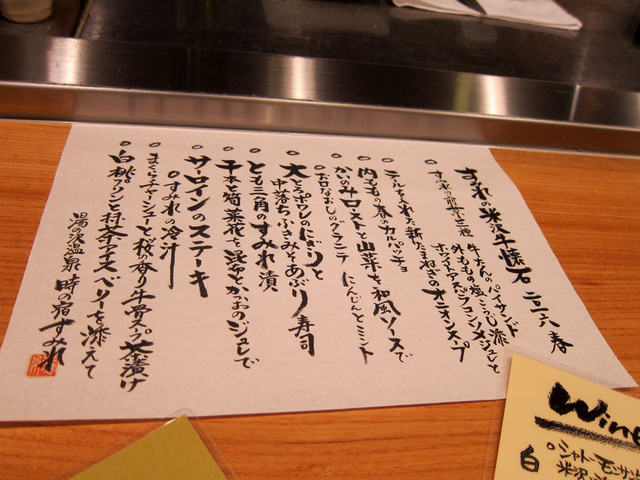 すみれの米沢牛懐石 二〇一八 春
。すみれの前菜三種 牛たんのパイサンド
外ももの塩こうじ添
ホワイトアスパラコンソメジュレと
。テールを入れた新たまねぎのオニオンスープ
。内ももの春のカルパッチョ
。かいのみローストと山菜を和風ソースで
。お口なおしのグラニテ にんじんとミント
。大とろポワレのにぎりと
中落ちふきみそあぶり寿司
。とも三角のすみれ漬
。千本と筍菜花を昆布とかつおのジュレで
。サーロインのステーキ
。すみれの冷汁
。まくらチャーシューと桜の香り牛骨スープ茶漬け
。白桃プリンと抹茶アイスベリーを添えて
湯の沢温泉 時の宿 すみれ
Wine
白
。シャトーモンサン
米沢